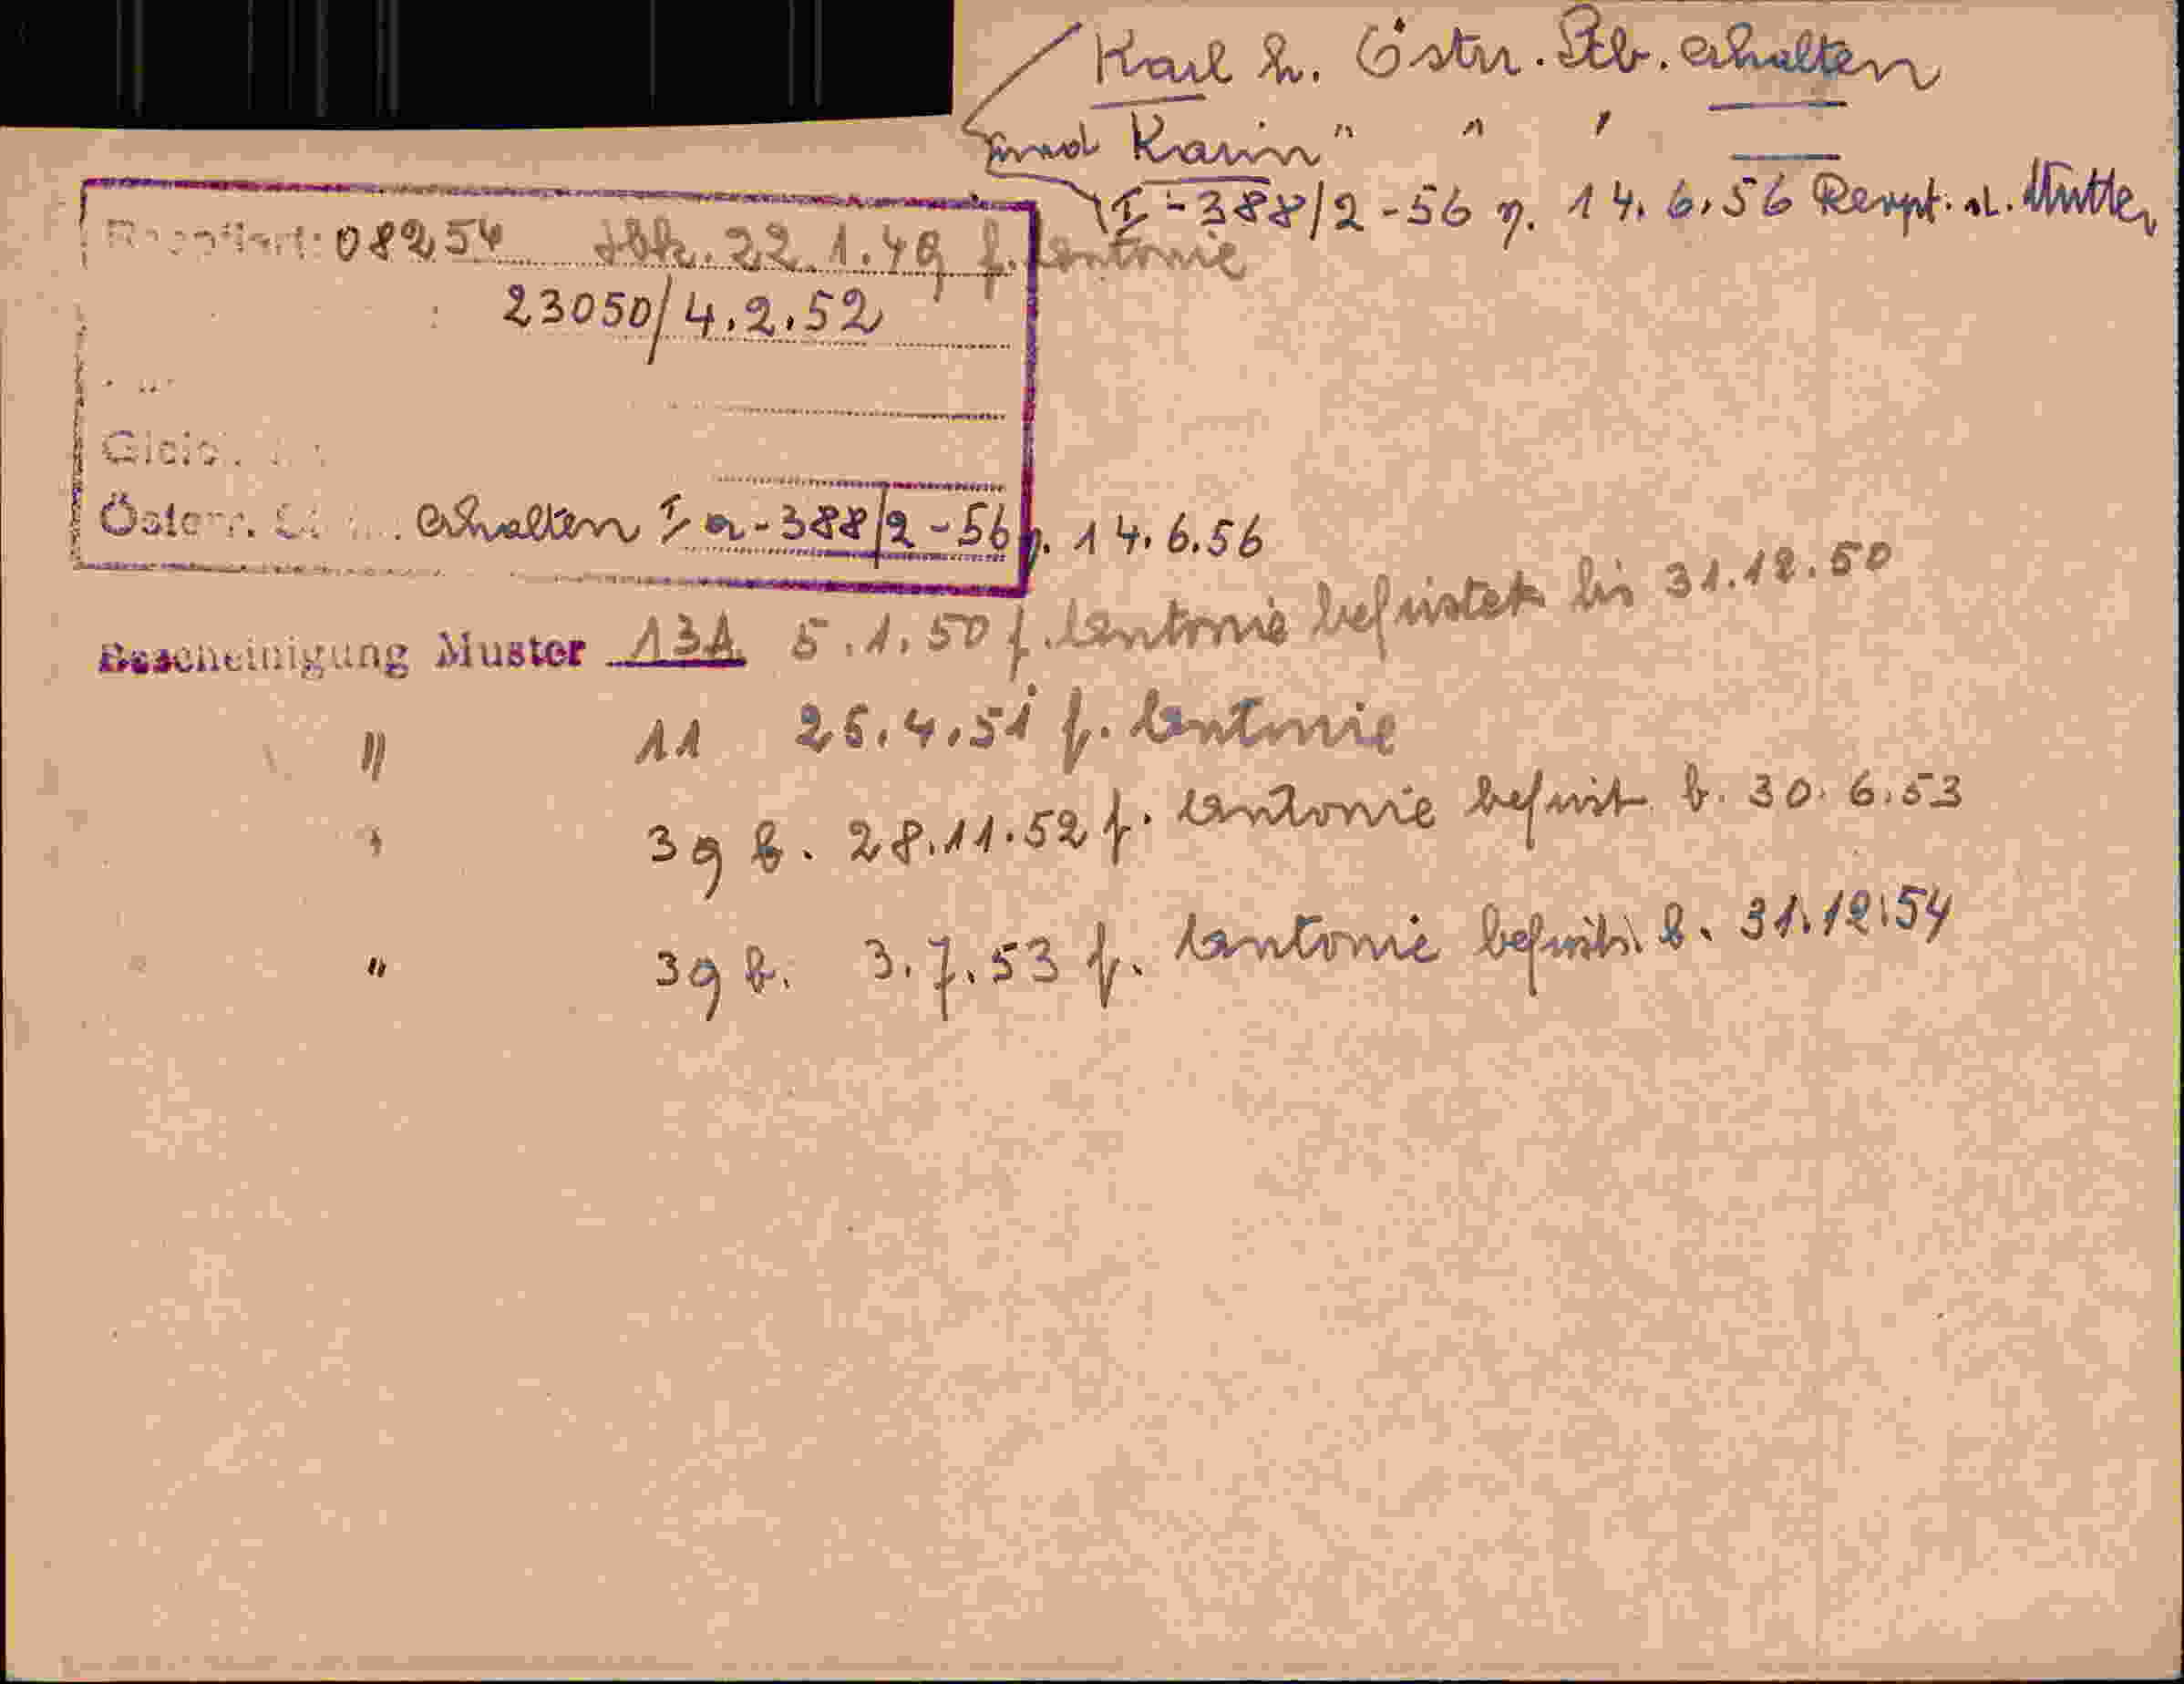 Karl h. Östr. Stb. erhalten
und Karin " " "
I-388/2-56 v. 14.6.56 Rempt. n. Mutter
08254 22.1.49 f. Antonie
23050/4.2.52
Österr. erhalten I a-388/2-56 v. 14.6.56
Bescheinigung Muster 13A 5.1.50 f. Antonie befristet bis 31.12.50
" 11 25.4.51 f. Antonie
" 39 b. 28.11.52 f. Antonie befrist b. 30.6.53
" 39 b. 3.7.53 f. Antonie befrist. b. 31.12.54